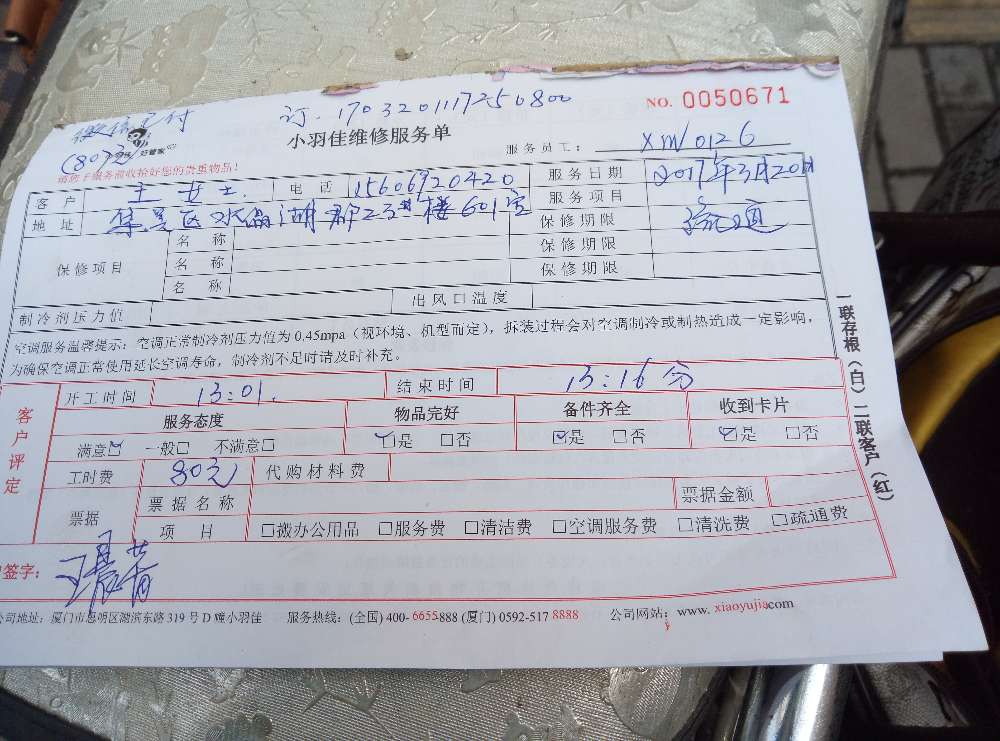 微信已付 订.1703201117250800 NO. 0050671
(80元) 好管家 小羽佳维修服务单 服务员工: XM0126
请您于服务前收拾好您的贵重物品!
客户 王女士. 电话 15606920420 服务日期 2017年3月20日
地址 湖群23#楼601室 服务项目
保修项目 名称 保修期限 疏通
名称 保修期限
名称 保修期限
制冷剂压力值 出风口温度
空调服务温馨提示:空调正常制冷剂压力值为0.45mpa(视环境、机型而定),拆装过程会对空调制冷或制热造成一定影响,
为确保空调正常使用延长空调寿命,制冷剂不足时请及时补充。
客户评定 开工时间 13:01. 结束时间 13:16分
服务态度 物品完好 备件齐全 收到卡片
满意☑ 一般□ 不满意□ ☑是 □否 ☑是 □否 ☑是 □否
工时费 80元 代购材料费
票据 票据名称 票据金额
项目 □搬办公用品 □服务费 □清洁费 □空调服务费 □清洗费 □疏通费
签字:
公司地址:厦门市思明区湖滨东路319号D幢小羽佳 服务热线:(全国)400-6655888(厦门)0592-5178888 公司网站:www.xiaoyujia.com
一联存根(白)二联客户(红)